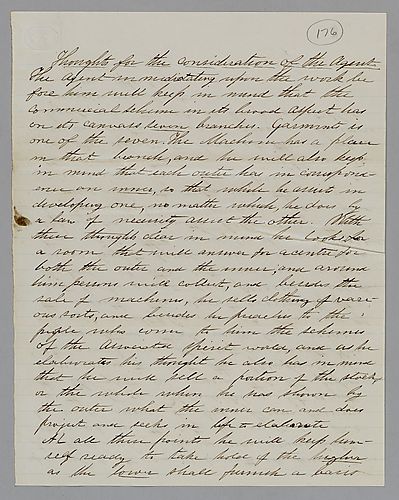 176
Thoughts for the consideration of the Agent
The Agent in meditating upon the work be
fore him will keep in mind that the
commercial scheme in its broad aspect has
on its canvass seven branches. Garments is
one of the seven. The Machine has a place
in that bench, and he will also keep
in mind that each outer has in correspond
ence an inner, so that while he assist in
developing one, no matter which, he does by
a law of necessity assist the other. With
these thoughts clear in mind he looks for
a room that will answer for a centre for
both the outer and the inner, and around
him persons will collect, and besides the
sale of machines, he sells clothing of vari
ous sorts, and besides he preaches to the
people who come to him the schemes
of the Associated Spirit world, and as he
elaborates his thought he also has in mind
that he will sell a portion of the stock
or the whole when he has shown by
the outer what the inner can and does
project and seek in life to elaborate
At all these points he will keep him-
self ready to take hold of the higher
as the lower shall furnish a basis